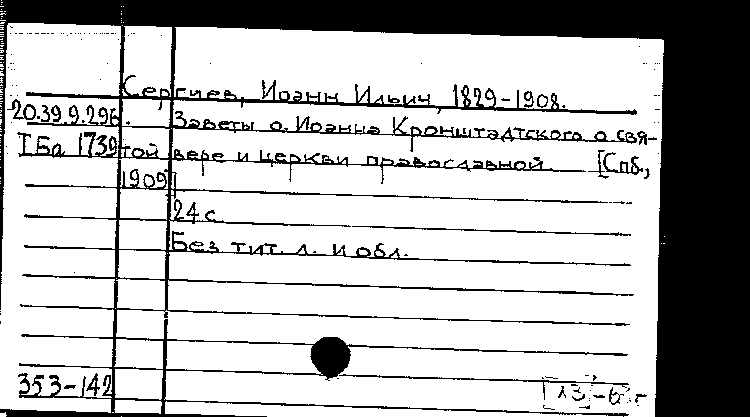 Сергиев, Иоанн Ильич, 1829-1908.
20.39.9.296. Заветы о. Иоанна Кронштадтского о свя-
I Ба 1739 той вере и церкви православной [Спб.,
1909]
24 с
Без тит. л. и обл.
353-142